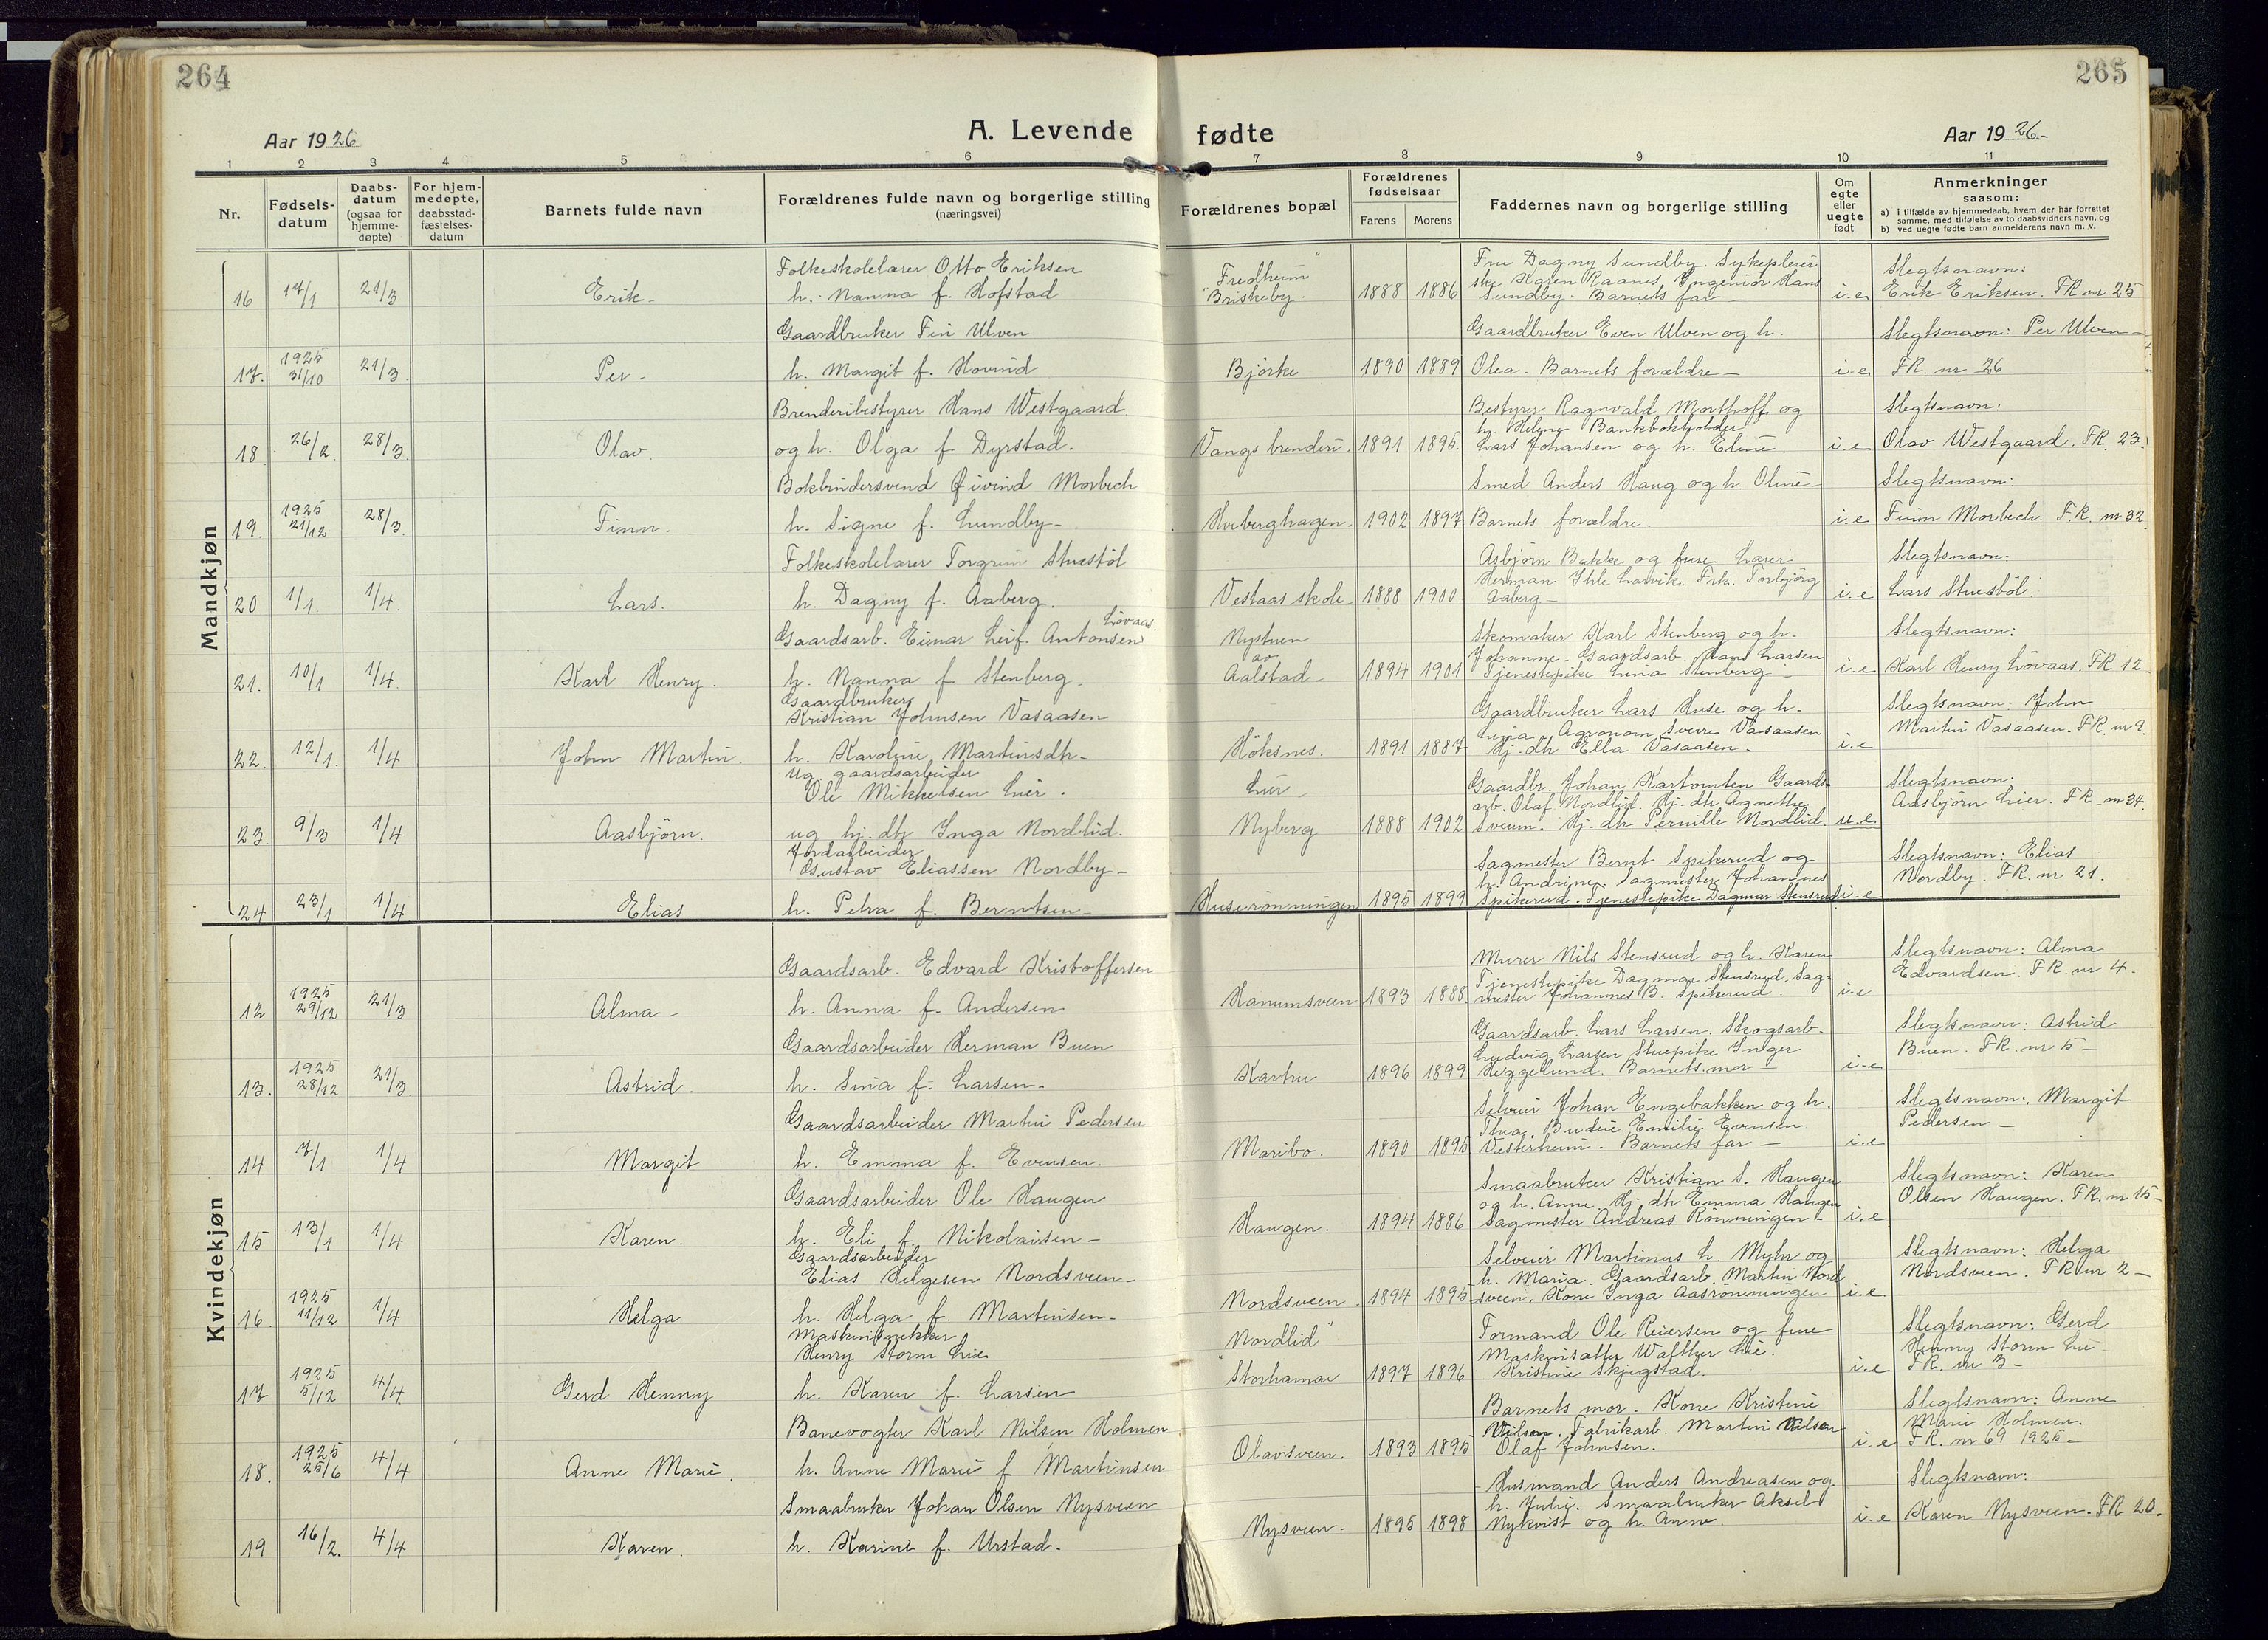 264
265
Aar 1926
A. Levende fødte
Aar 1926-
1 2 3 4 5 6 7 8 9 10 11
Nr.
Fødsels-
datum
Daabs-
datum
(ogsaa for
hjemme-
døpte)
For hjem-
medøpte,
daabsstad-
fæstelses-
datum
Barnets fulde navn
Forældrenes fulde navn og borgerlige stilling
(næringsvei)
Forældrenes bopæl
Forældrenes
fødselsaar
Farens Morens
Faddernes navn og borgerlige stilling
Om
egte
eller
uegte
født
Anmerkninger
saasom:
a) i tilfælde av hjemmedaab, hvem der har forrettet
samme, med tilføielse av to daabsvidners navn, og
b) ved uegte fødte barn anmelderens navn m. v.
Mandkjøn
16 17/1 21/3 Erik-
Folkeskolelærer Otto Eriksen
h. Nanna f. Hofstad
"Fredheim"
Briskeby. 1888 1886
Fru Dagny Sundby. Sykepleier
ske Karen Raanes Ingeniør Hans
Sundby. Barnets far- i.e
Slegtsnavn:
Erik Eriksen. FR. nr 25
17. 1925 31/10 21/3 Per-
Gaardbruker Fin Ulven
h. Margit f. Hovind
Bjørke 1890 1889
Gaardbruker Even Ulven og h.
Olea. Barnets forældre- i.e
Slegtsnavn: Per Ulven-
FR. nr 26
18 26/2 28/3 Olav.
Brenderibestyrer Hans Westgaard
og h. Olga f Dyrstad.
Vangs brenderi. 1891 1895.
Bestyrer Ragnvald Morthoff og
h. Helene Bankbokholder
Lars Johansen og h. Eline. i.e
Slegtsnavn:
Olav Westgaard. FR. 23.
19. 1925 21/12 28/3 Finn.
Bokbindersvend Øivind Morbech
h. Signe f. Lundby-
Hoberghagen. 1902 1897
Smed Anders Haug og h. Oline-
Barnets forældre. i.e
Slegtsnavn:
Finn Morbech. F.R. nr 32.
20 1/1. 1/4. Lars.
Folkeskolelærer Torgrim Stuestøl
h. Dagny f. Aaberg.
Vestaas skole- 1888 1900
Asbjørn Bakke og frue Lærer
Herman Ihle Larvik. Frk. Torbjørg
Aaberg- i.e
Slegtsnavn:
Lars Stuestøl.
21. 10/1 1/4. Karl Henry.
Løvaas.
Gaardsarb. Einar Leif. Antonsen
h. Nanna f Stenberg.
Nystuen
av
Aalstad- 1894 1901
Skomaker Karl Stenberg og h.
Johanne. Gaardsarb. Hans Larsen
Tjenestepike Lina Stenberg- i.e
Slegtsnavn:
Karl Henry Løvaas. FR. 12-
22. 12/1. 1/4 John Martin.
Gaardbruker
Kristian Johnsen Vasaasen
h. Karoline Martinsdh-
Høksnes. 1891 1887
Gaardbruker Lars Huse og h.
Lina. Agronom Sverre Vasaasen
Hj. dh Ella Vasaasen- i.e
Slegtsnavn: John
Martin Vasaasen. FR. nr 9.
23. 9/3 1/4 Aasbjørn.
Ug. gaardsarbeider
Ole Mikkelsen Lier.
ug hj. dh Inga Nordlid.
Lier-
Nyberg 1888 1902
Gaardbr. Johan Kartomten. Gaards-
arb. Olaf Nordlid. Hj. dh. Agnethe
Sveum. Hj. dh Pernille Nordlid u.e
Slegtsnavn:
Aasbjørn Lier. FR. nr 34.
24 23/1 1/4 Elias
Jordarbeider
Gustav Eliassen Nordby-
h. Petra f. Berntsen-
Huserønningen 1895 1899
Sagmester Bernt Spikerud og
h. Andrine. Sagmester Johannes
Spikerud. Tjenestepike Dagmar Stensrud i.e
Slegtsnavn: Elias
Nordby. FR. nr 21.
Kvindekjøn
12 1925 29/12 21/3 Alma-
Gaardsarb. Edvard Kristoffersen
h. Anna f. Andersen
Hanumsveen 1893 1888
Murer Nils Stensrud og h. Karen
Tjenestepike Dagmar Stensrud. Sag-
mester Johannes B. Spikerud. i.e
Slegtsnavn: Alma
Edvardsen. FR. nr 4.
13. 1925 28/12 21/3. Astrid.
Gaardsarbeider Herman Buen
h. Sina f. Larsen-
Kartru 1896 1899
Gaardsarb. Lars Larsen. Skogsarb.
Ludvig Larsen Stuepike Inger
Heggelund. Barnets mor- i.e
Slegtsnavn: Astrid
Buen. FR. nr 5-
14 7/1 1/4 Margit
Gaardsarbeider Martin Pedersen
h. Emma f. Evensen.
Maribo. 1890 1895
Selveier Johan Engebakken og h.
Thea. Budeie Emilie Evensen
Vesterheim. Barnets far- i.e
Slegtsnavn: Margit
Pedersen-
15 13/1 1/4 Karen.
Gaardsarbeider Ole Haugen
h. Eli f. Nikolaisen-
Haugen. 1894 1886
Smaabruker Kristian S. Haugen
og h. Anne. Hj. dh Emma Haugen
Sagmester Andreas Rønningen- i.e
Slegtsnavn: Karen
Olsen Haugen. FR. nr 15-
16. 1925 11/12 1/4 Helga
Gaardsarbeider
Elias Helgesen Nordsveen-
h. Helga f. Martinsen-
Nordsveen. 1894 1895
Selveier Martinus h. Myhr og
h. Maria. Gaardsarb. Martin Nord
sveen. Kone Inga Aasrønningen i.e
Slegtsnavn: Helga
Nordsveen. FR. nr 2-
17 1925 5/12 4/4. Gerd Henny
Maskinsnekker
Henry Storm Lie
h. Karen f. Larsen
Nordlid"
"Storhamar 1897 1896
Formand Ole Reiersen og frue
Maskinsætter Walther Lie.
Kristine Skjegstad. i.e
Slegtsnavn: Gerd
Henny Storm Lie-
FR. nr 3-
18. 1925 25/6 4/4 Anne Marie.
Banevogter Karl Nilsen Holmen
h. Anne Marie f Martinsen
Olavsveen. 1893 1895
Barnets mor. Kone Kristine
Nilsen. Fabrikarb. Martin Nilsen
Olaf Johnsen. i.e
Slegtsnavn: Anne
Marie Holmen.
FR. nr 69 1925-
19 16/2. 4/4 Karen.
Smaabruker Johan Olsen Nysveen
h. Karine f. Urstad.
Nysveen- 1895 1898
Husmand Anders Andreasen og
h. Julie. Smaabruker Aksel
Nykvist og h. Anne. i.e
Slegtsnavn:
Karen Nysveen. FR 20.